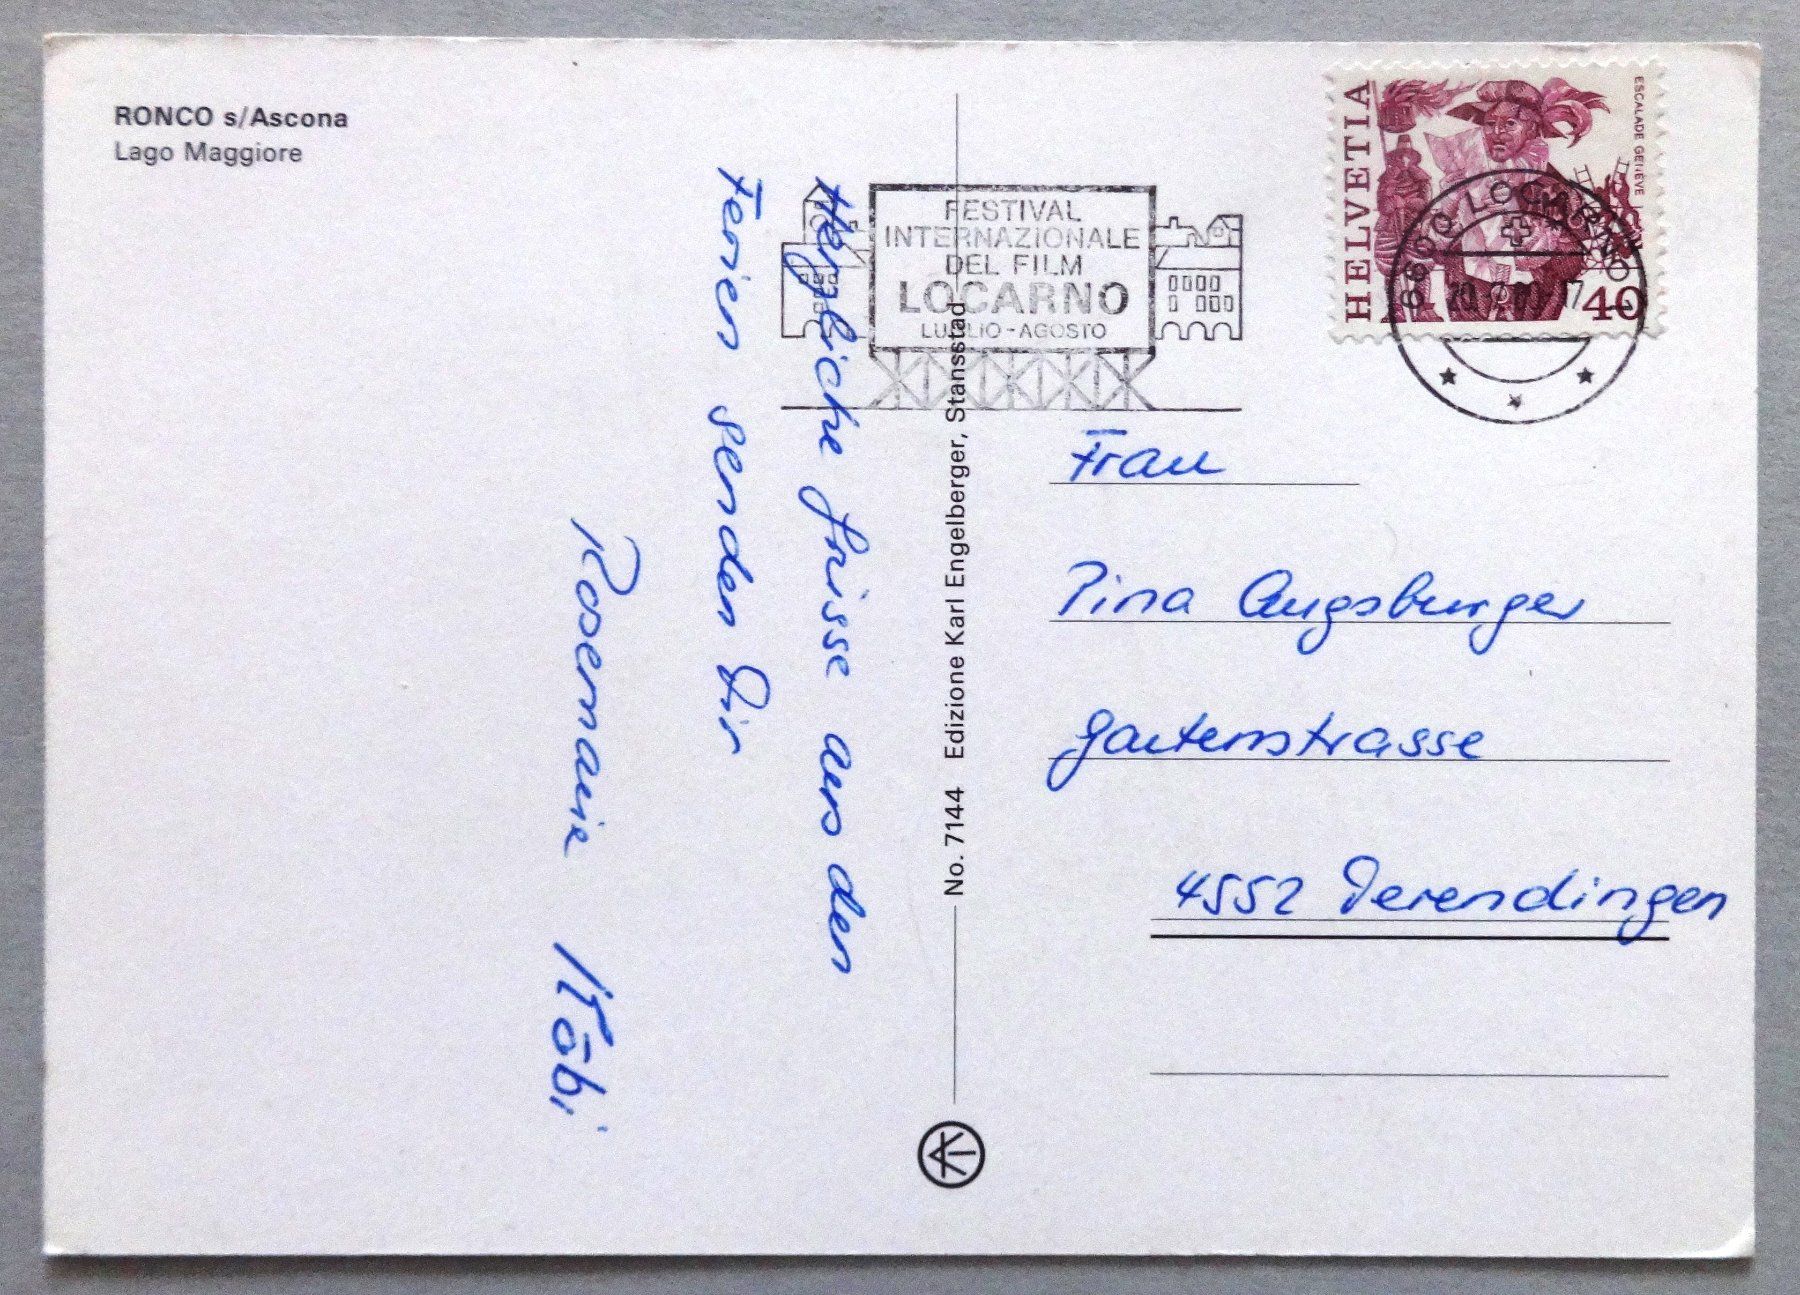 RONCO s/Ascona
Lago Maggiore
Herzliche Grüsse aus den
Ferien senden Dir
Rosemarie Köbi
No. 7144 Edizione Karl Engelberger, Stansstad
FESTIVAL
INTERNAZIONALE
DEL FILM
LOCARNO
LUGLIO - AGOSTO
HELVETIA
ESCALADE GENÈVE
40
6600 LOCARNO 1
Frau
Pina Augsburger
Gartenstrasse
4552 Derendingen